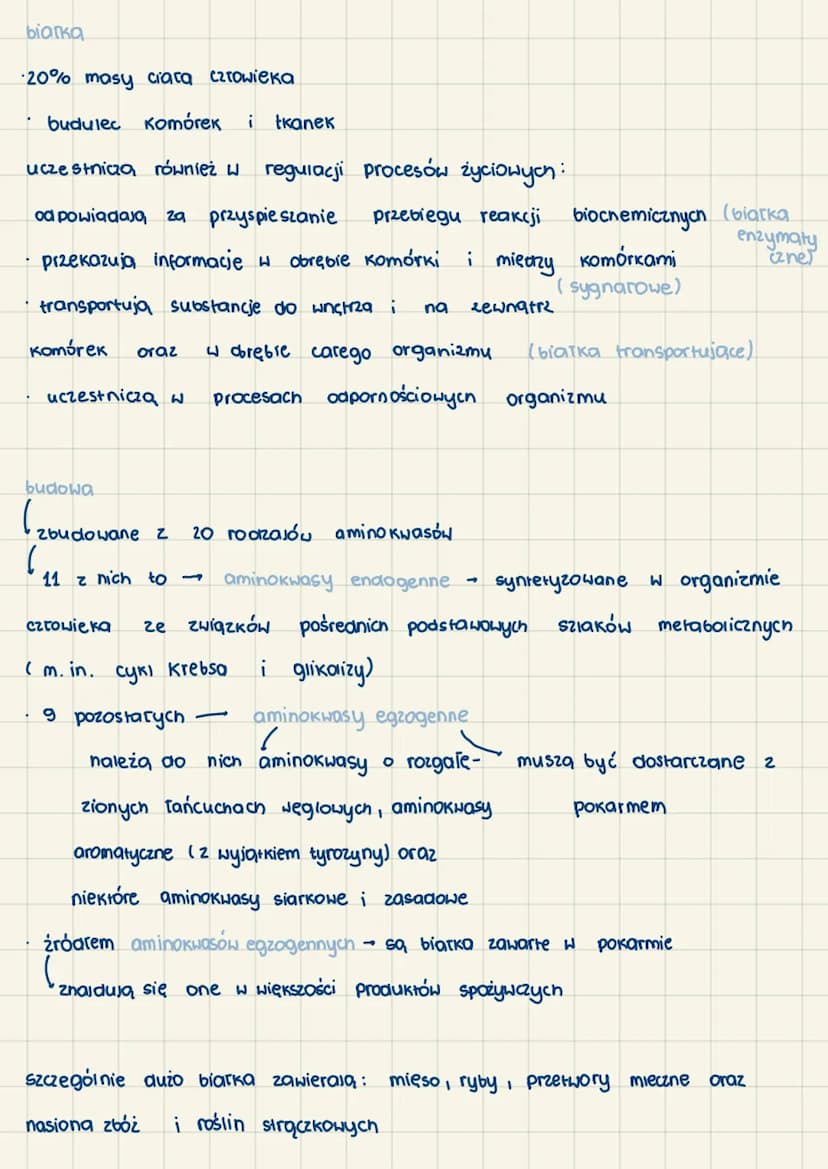 białka
·20% masy ciała człowieka
· budulec komórek i tkanek
uczestniczą również w regulacji procesów życiowych:
odpowiadają za przyspieszanie przebiegu reakcji biochemicznych (białka enzymatyczne)
· przekazują informacje w obrębie komórki i między komórkami (sygnałowe)
· transportują substancje do wnętrza i na zewnątrz
komórek oraz w obrębie całego organizmu (białka transportujące)
· uczestniczą w procesach odpornościowych organizmu
budowa
zbudowane z 20 rodzajów aminokwasów
11 z nich to → aminokwasy endogenne → syntetyzowane w organizmie
człowieka ze związków pośrednich podstawowych szlaków metabolicznych
(m.in. cykl Krebsa i glikolizy)
· 9 pozostałych → aminokwasy egzogenne
należą do nich aminokwasy o rozgałę- muszą być dostarczane z
zionych łańcuchach węglowych, aminokwasy pokarmem
aromatyczne (z wyjątkiem tyrozyny) oraz
niektóre aminokwasy siarkowe i zasadowe
· źródłem aminokwasów egzogennych → są białka zawarte w pokarmie
znajdują się one w większości produktów spożywczych
szczególnie dużo białka zawierają: mięso, ryby, przetwory mleczne oraz
nasiona zbóż i roślin strączkowych